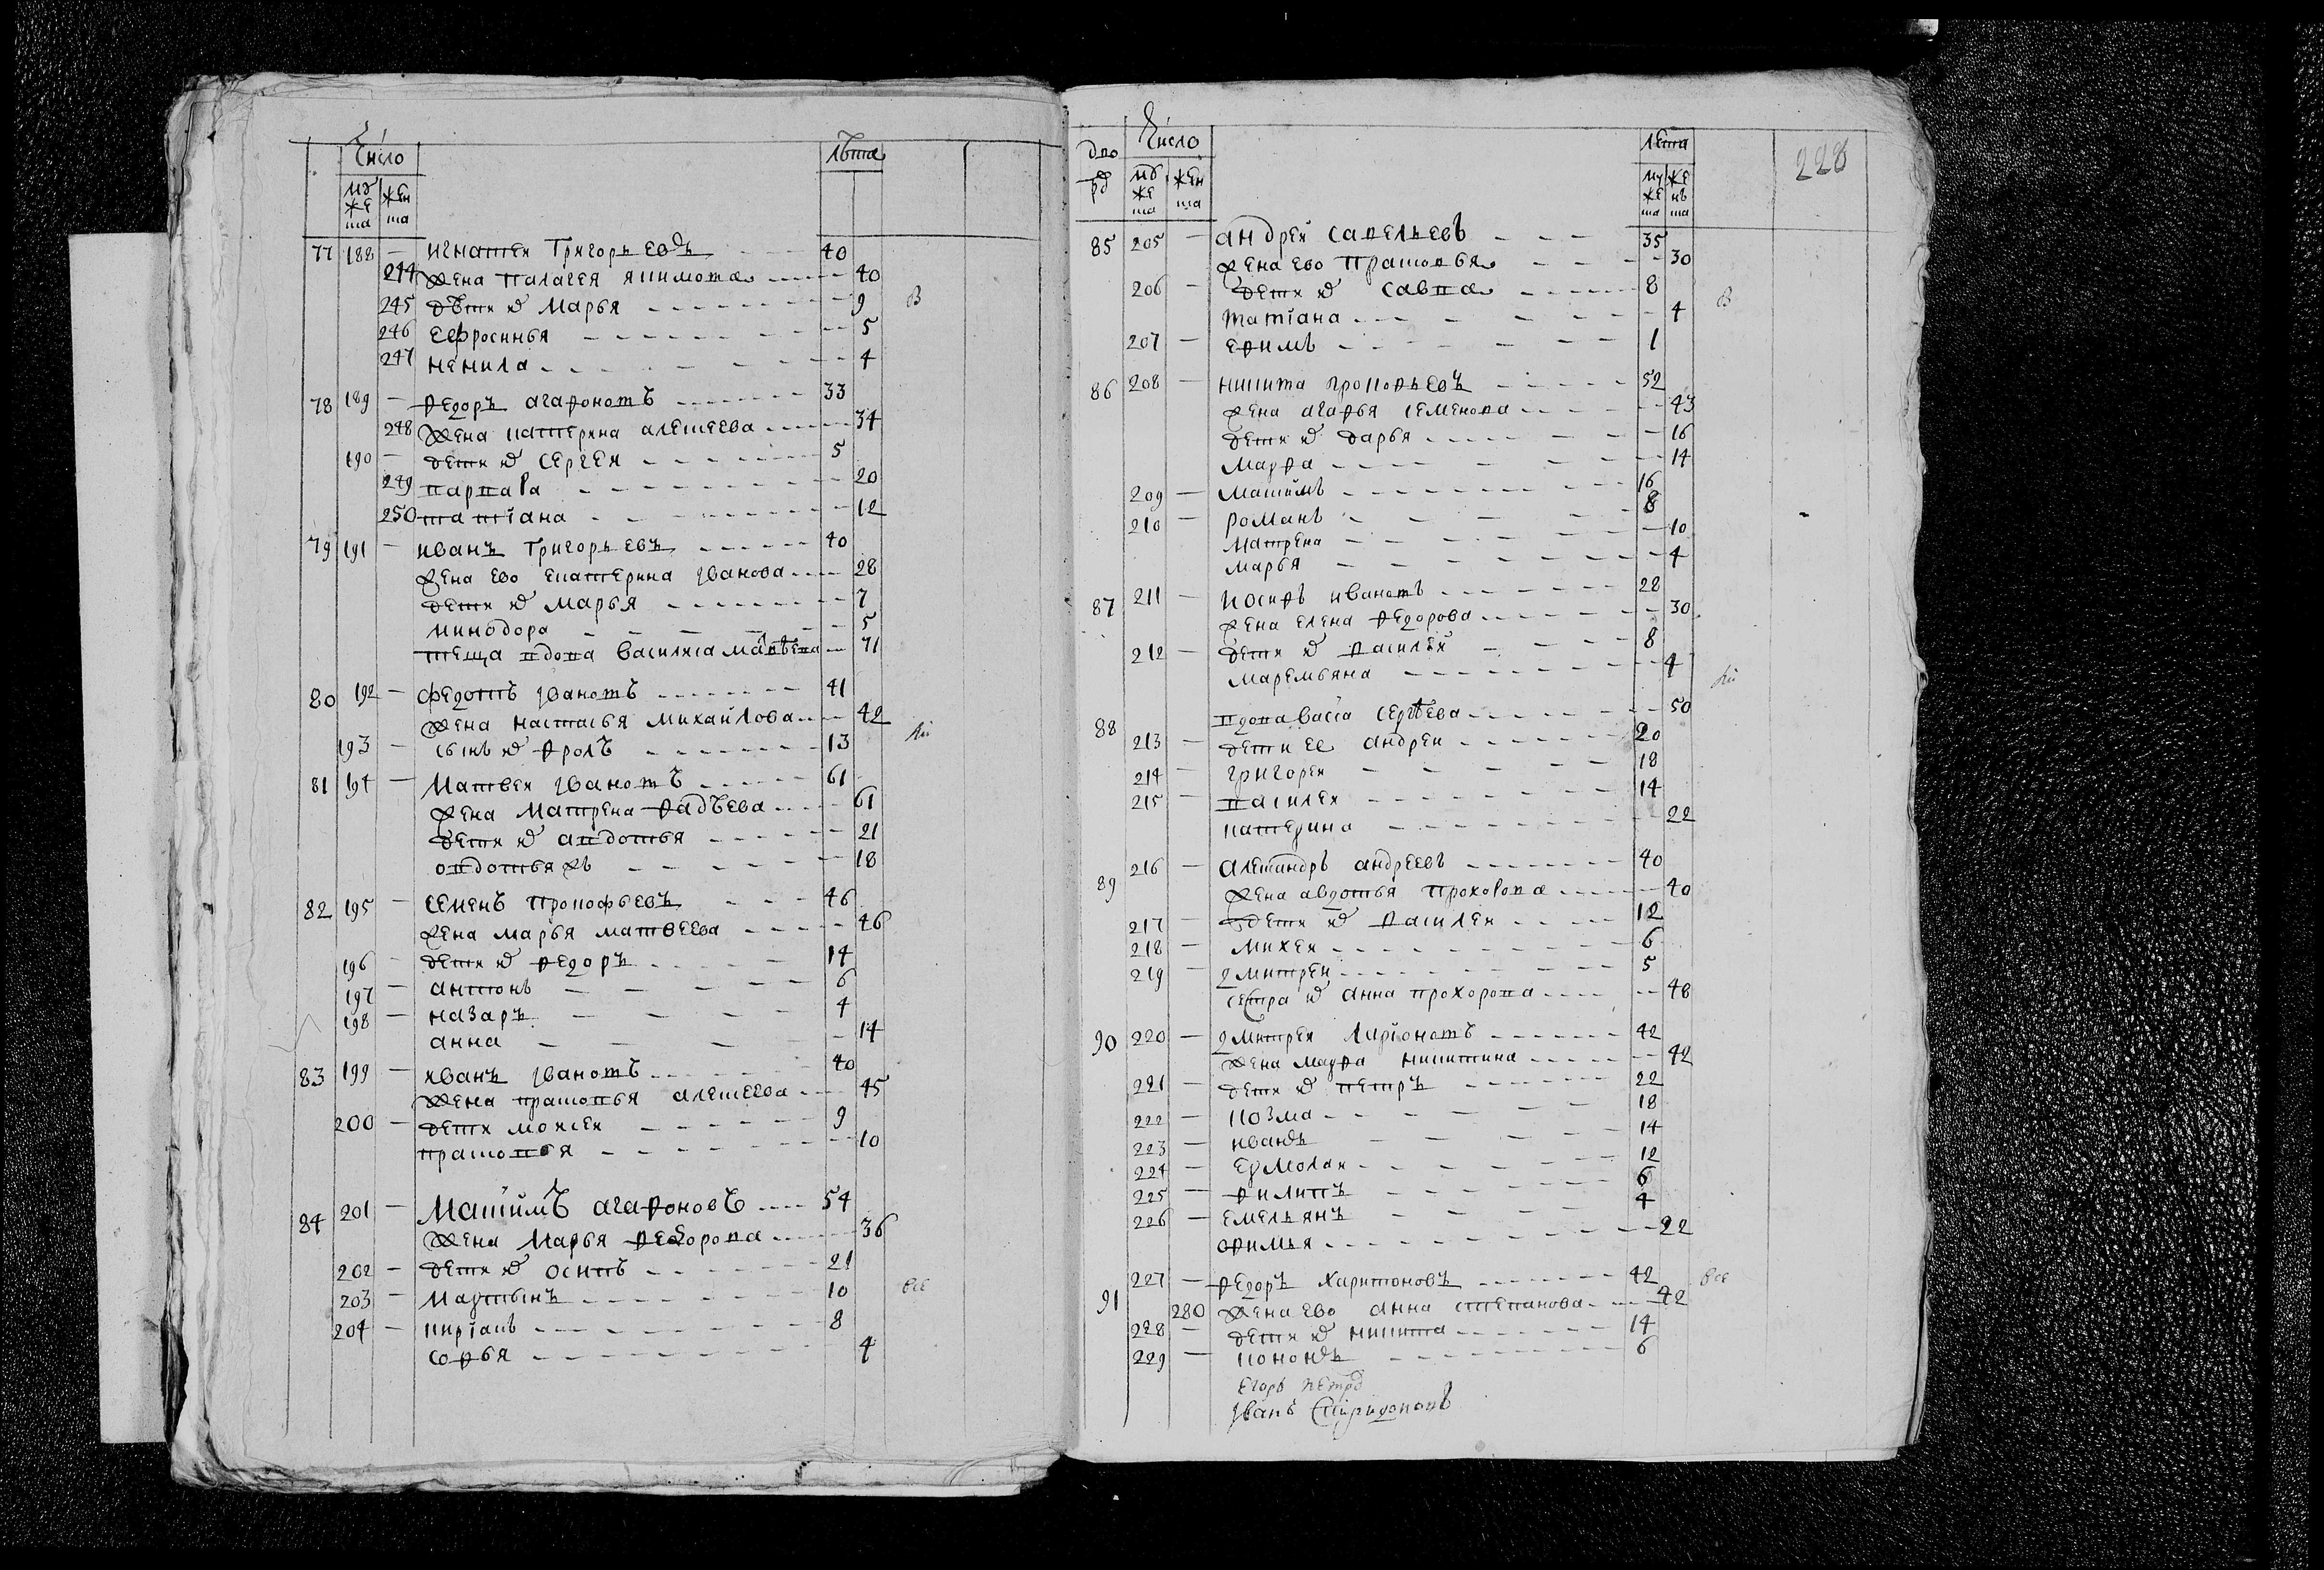 Число
лѣта
муже
ска
жен
ска
77 188 — игнатеи григорьевъ - - 40
244 жена палагея якимова - - - 40
245 дѣти иⷯ марья - - - 9
246 ефросинья - - - 5
247 ненила - - - 4
78 189 — федоръ агафоновъ - - - 33
248 жена катерина алексеева - - - 34
190 — дети иⷯ сергеи - - - 5
249 варвара - - - 20
250 татіана - - - 12
79 191 — иванъ григорьевъ - - - 40
жена ево екатерина иванова - - - 28
дети иⷯ марья - - - 7
минодора - - - 5
теща вдова василиса матвѣева - - 71
80 192 — федотъ ивановъ - - - 41
жена настасья михаилова - - - 42
193 — сынъ иⷯ фролъ - - - 13
81 194 — матвеи ивановъ - - - 61
жена матрена фадѣева - - - 61
дети иⷯ авдотья - - - 21
овдотья жъ - - - 18
82 195 — семенъ прокофьевъ - - - 46
жена марья матвеева - - - 46
196 — дети иⷯ федоръ - - - 14
197 — антонъ - - - 6
198 — назаръ - - - 4
анна - - - 14
83 199 — иванъ ивановъ - - - 40
жена прасковья алексеева - - - 45
200 — дети моисеи - - - 9
прасковья - - - 10
84 201 — максимъ агафоновъ - - - 54
жена марья федорова - - - 36
202 — дети иⷯ осипъ - - - 21
203 — мартынъ - - - 10
все
204 — кирїанъ - - - 8
софья - - - 4
228
Число
лета
муже
жен
85 205 — андреи савельевъ - - - 35
жена ево прасковья - - - 30
206 — дети иⷯ савва - - - 8
татїана - - - 4
207 — ефимъ - - - 1
86 208 — никита прокофьевъ - - - 52
жена агафья семенова - - - 43
дети иⷯ дарья - - - 16
мавра - - - 14
209 — максимъ - - - 16
210 — романъ - - - 8
матрена - - - 10
марья - - - 4
87 211 — иосифъ ивановъ - - - 28
жена елена федорова - - - 30
212 — дети иⷯ василеи - - - 8
маремьяна - - - 4
88 вдова васса сергѣева - - - 50
213 — дети ее андреи - - - 20
214 — григореи - - - 18
215 — василеи - - - 14
катерина - - - 22
89 216 — александръ андреевъ - - - 40
жена авдотья прохорова - - - 40
217 — дети иⷯ василеи - - - 12
218 — михеи - - - 6
219 — дмитреи - - - 5
сестра иⷯ анна прохорова - - - 48
90 220 — дмитреи ларїоновъ - - - 42
жена мавра никитина - - - 42
221 — дети иⷯ петръ - - - 22
222 — козма - - - 18
223 — иванъ - - - 14
224 — ермолаи - - - 12
225 — филипъ - - - 6
226 — емельянъ - - - 4
офимья - - - 22
91 227 — федоръ харитоновъ - - - 42
все
280 жена ево анна степанова - - - 42
228 — дети иⷯ никита - - - 14
229 — кононъ - - - 6
егоръ петръ
иванъ спиридоновъ